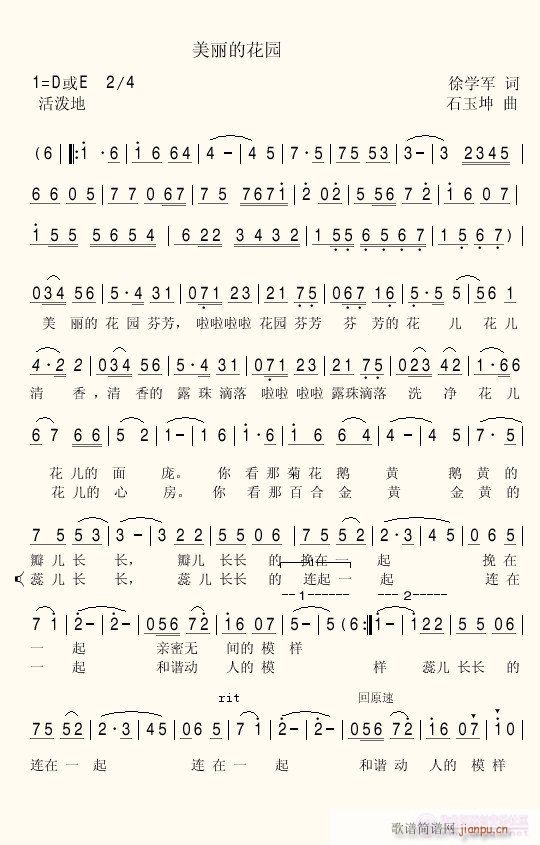 美丽的花园
1=D或E 2/4 徐学军 词
活泼地 石玉坤 曲
(6 | ‖: 1 · 6 | 1 6 6 4 | 4 - | 4 5 | 7 · 5 | 7 5 5 3 | 3 - | 3 2345 |
6 6 0 5 | 7 7 0 67 | 7 5 7671 | 2 02 | 5 56 7 2 | 1 6 0 7 |
1 5 5 5 6 5 4 | 6 22 3 4 3 2 | 1 55 6 5 6 7 | 1 5 6 7 ) |
034 56 | 5 · 4 31 | 071 23 | 21 75 | 067 16 | 5 · 5 5 | 56 1
美 丽的 花 园 芬芳, 啦啦啦啦 花园 芬芳 芬 芳的 花 儿 花儿
4 · 2 2 | 034 56 | 5 · 4 31 | 071 23 | 21 75 | 023 42 | 1 · 66
清 香, 清 香的 露 珠 滴落 啦啦 啦啦 露珠滴落 洗 净 花儿
6 7 6 6 | 5 2 | 1 - | 1 - | 1 · 6 | 1 6 6 4 | 4 - | 4 5 | 7 · 5 |
花 儿的 面 庞。 你 看 那菊花 鹅 黄 鹅 黄的
花 儿的 心 房。 你 看 那百合 金 黄 金 黄的
7 5 5 3 | 3 - | 3 2 2 | 5 5 0 6 | 7 5 5 2 | 2 · 3 | 4 5 | 0 6 5 |
瓣儿 长 长, 瓣儿 长长 的 挽在 一 起 挽 在
蕊 儿 长 长, 蕊 儿 长长 的 连起 一 起 连 在
--1------ --2-----
7 1 | 2 - | 2 - | 056 72 | 16 07 | 5 - | 5 (6 :‖ 1 - | 122 | 55 06 |
一 起 亲密无 间的 模 样
一 起 和谐动 人的 模 样 蕊儿 长长 的
rit 回原速
75 52 | 2 · 3 | 45 | 06 5 | 7 1 | 2 - | 2 - | 056 72 | 16 07 | 10
连在 一 起 连 在 一 起 和谐 动 人的 模 样
歌谱简谱网
jianpu.cn